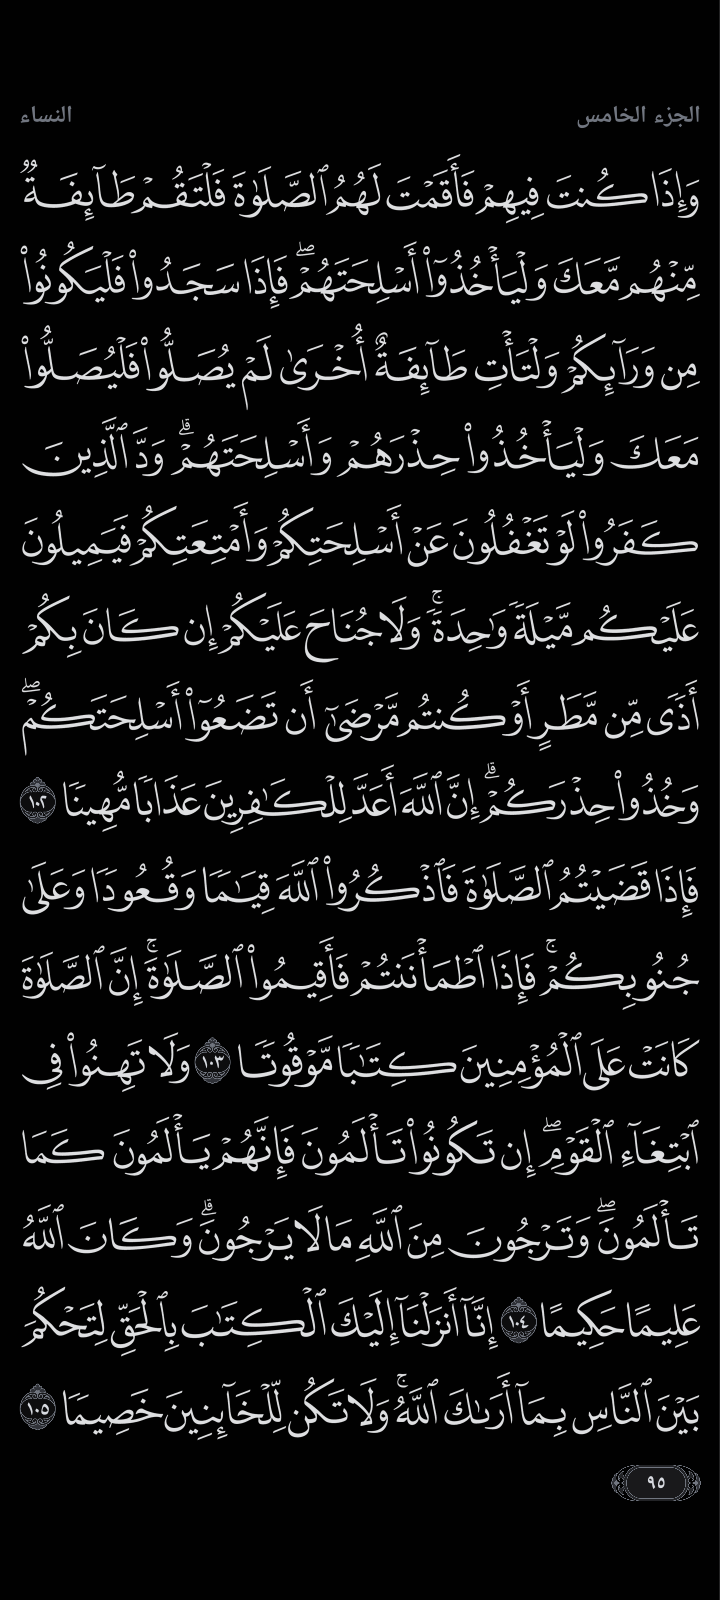 الجزء الخامس
النساء
وَإِذَا كُنتَ فِيهِمْ فَأَقَمْتَ لَهُمُ ٱلصَّلَوٰةَ فَلْتَقُمْ طَآئِفَةٌ
مِّنْهُم مَّعَكَ وَلْيَأْخُذُوٓا۟ أَسْلِحَتَهُمْۖ فَإِذَا سَجَدُوا۟ فَلْيَكُونُوا۟
مِن وَرَآئِكُمْ وَلْتَأْتِ طَآئِفَةٌ أُخْرَىٰ لَمْ يُصَلُّوا۟ فَلْيُصَلُّوا۟
مَعَكَ وَلْيَأْخُذُوا۟ حِذْرَهُمْ وَأَسْلِحَتَهُمْۗ وَدَّ ٱلَّذِينَ
كَفَرُوا۟ لَوْ تَغْفُلُونَ عَنْ أَسْلِحَتِكُمْ وَأَمْتِعَتِكُمْ فَيَمِيلُونَ
عَلَيْكُم مَّيْلَةً وَٰحِدَةًۚ وَلَا جُنَاحَ عَلَيْكُمْ إِن كَانَ بِكُمْ
أَذًى مِّن مَّطَرٍ أَوْ كُنتُم مَّرْضَىٰٓ أَن تَضَعُوٓا۟ أَسْلِحَتَكُمْۖ
وَخُذُوا۟ حِذْرَكُمْۗ إِنَّ ٱللَّهَ أَعَدَّ لِلْكَٰفِرِينَ عَذَابًا مُّهِينًا ١٠٢
فَإِذَا قَضَيْتُمُ ٱلصَّلَوٰةَ فَٱذْكُرُوا۟ ٱللَّهَ قِيَٰمًا وَقُعُودًا وَعَلَىٰ
جُنُوبِكُمْۚ فَإِذَا ٱطْمَأْنَنتُمْ فَأَقِيمُوا۟ ٱلصَّلَوٰةَۚ إِنَّ ٱلصَّلَوٰةَ
كَانَتْ عَلَى ٱلْمُؤْمِنِينَ كِتَٰبًا مَّوْقُوتًا ١٠٣ وَلَا تَهِنُوا۟ فِى
ٱبْتِغَآءِ ٱلْقَوْمِۖ إِن تَكُونُوا۟ تَأْلَمُونَ فَإِنَّهُمْ يَأْلَمُونَ كَمَا
تَأْلَمُونَۖ وَتَرْجُونَ مِنَ ٱللَّهِ مَا لَا يَرْجُونَۗ وَكَانَ ٱللَّهُ
عَلِيمًا حَكِيمًا ١٠٤ إِنَّآ أَنزَلْنَآ إِلَيْكَ ٱلْكِتَٰبَ بِٱلْحَقِّ لِتَحْكُمَ
بَيْنَ ٱلنَّاسِ بِمَآ أَرَىٰكَ ٱللَّهُۚ وَلَا تَكُن لِّلْخَآئِنِينَ خَصِيمًا ١٠٥
٩٥